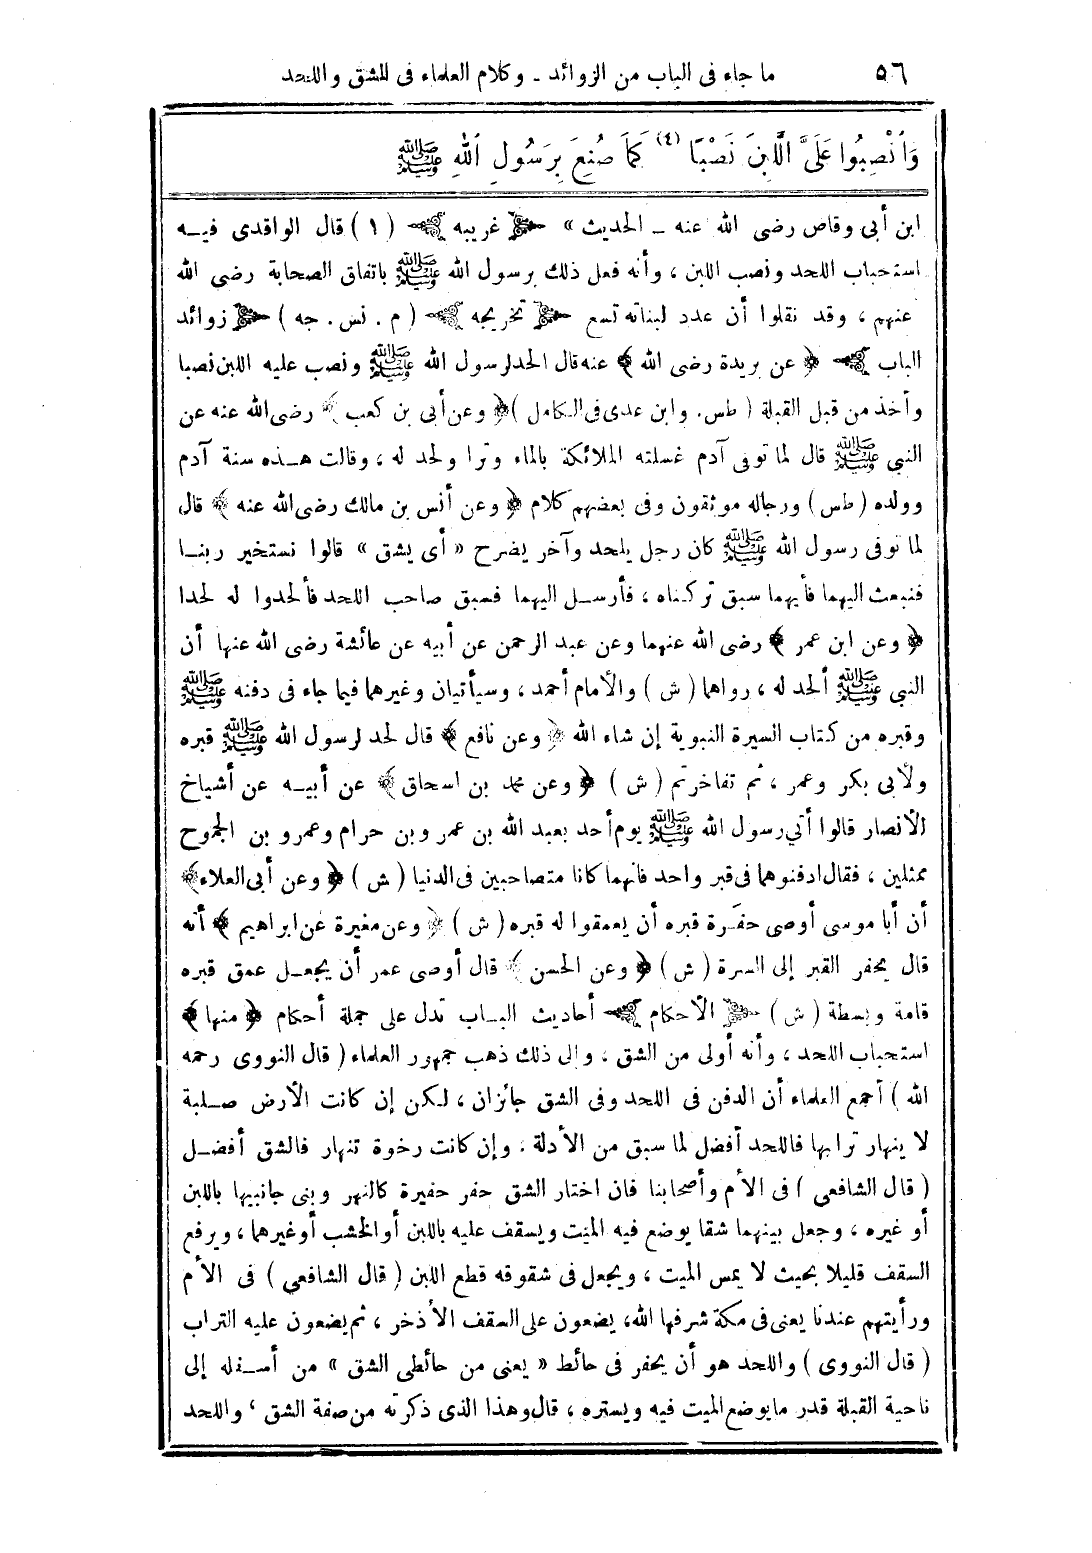 ٥٦ ما جاء فى الباب من الزوائد ـ وكلام العلماء فى الشق واللحد
وَٱنْصِبُوا عَلَىَّ اللَّبِنَ نَصْبًا (٤) كَمَا صُنِعَ بِرَسُولِ اللهِ ﷺ
ابن أبى وقاص رضى الله عنه ـ الحديث » ﴿ غريبه ﴾ (١) قال الواقدى فيـه
استحباب اللحد ونصب اللبن ، وأنه فعل ذلك برسول الله ﷺ باتفاق الصحابة رضى الله
عنهم ، وقد نقلوا أن عدد لبناته تسع ﴿ تخريجه ﴾ ( م . نس . جه ) ﴿ زوائد
الباب ﴾ ﴿ عن بريدة رضى الله ﴾ عنه قال الحد لرسول الله ﷺ ونصب عليه اللبن نصبا
وأخذ من قبل القبلة ( طس . وابن عدى فى الكامل ) ﴿ وعن أبى بن كعب ﴾ رضى الله عنه عن
النبي ﷺ قال لما توفى آدم غسلته الملائكة بالماء وترا ولحد له ، وقالت هـذه سنة آدم
وولده ( طس ) ورجاله موثقون وفى بعضهم كلام ﴿ وعن أنس بن مالك رضى الله عنه ﴾ قال
لما توفى رسول الله ﷺ كان رجل يلحد وآخر يضرح « أى يشق » قالوا نستخير ربنـا
فنبعث اليهما فأيهما سبق تركناه ، فأرسـل اليهما فسبق صاحب اللحد فألحدوا له لحدا
﴿ وعن ابن عمر ﴾ رضى الله عنهما وعن عبد الرحمن عن أبيه عن عائشة رضى الله عنها أن
النبي ﷺ ألحد له ، رواهما ( ش ) والأمام أحمد ، وسيأتيان وغيرهما فيما جاء فى دفنه ﷺ
وقبره من كتاب السيرة النبوية إن شاء الله ﴿ وعن نافع ﴾ قال لحد لرسول الله ﷺ قبره
ولأبى بكر وعمر ، ثم تفاخرتم ( ش ) ﴿ وعن محمد بن اسحاق ﴾ عن أبيـه عن أشياخ
الأنصار قالوا أتي رسول الله ﷺ يوم أحد بعبد الله بن عمر وبن حرام وعمرو بن الجموح
ممثلين ، فقال ادفنوهما فى قبر واحد فانهما كانا متصاحبين فى الدنيا ( ش ) ﴿ وعن أبى العلاء ﴾
أن أبا موسى أوصى حفرة قبره أن يعمقوا له قبره ( ش ) ﴿ وعن مغيرة عن ابراهيم ﴾ أنه
قال يحفر القبر إلى السرة ( ش ) ﴿ وعن الحسن ﴾ قال أوصى عمر أن يجعـل عمق قبره
قامة وبسطة ( ش ) ﴿ الأحكام ﴾ أحاديث البـاب تدل على جملة أحكام ﴿ منها ﴾
استحباب اللحد ، وأنه أولى من الشق ، والى ذلك ذهب جمهور العلماء ( قال النووى رحمه
الله ) أجمع العلماء أن الدفن فى اللحد وفى الشق جائزان ، لـكن إن كانت الأرض صـلبة
لا ينهار ترابها فاللحد أفضل لما سبق من الأدلة ، وإن كانت رخوة تنهار فالشق أفضـل
( قال الشافعي ) فى الأم وأصحابنا فان اختار الشق حفر حفيرة كالنهر وبنى جانبيها باللبن
أو غيره ، وجعل بينهما شقا يوضع فيه الميت ويسقف عليه باللبن أو الخشب أو غيرهما ، ويرفع
السقف قليلا بحيث لا يمس الميت ، ويجعل فى شقوقه قطع اللبن ( قال الشافعي ) فى الأم
ورأيتهم عندنا يعنى فى مكة شرفها الله، يضعون على السقف الأذخر ، ثم يضعون عليه التراب
( قال النووى ) واللحد هو أن يحفر فى حائط « يعنى من حائطى الشق » من أسـفله إلى
ناحية القبلة قدر ما يوضع الميت فيه ويستره ، قال وهذا الذى ذكرته من صفة الشق ، واللحد